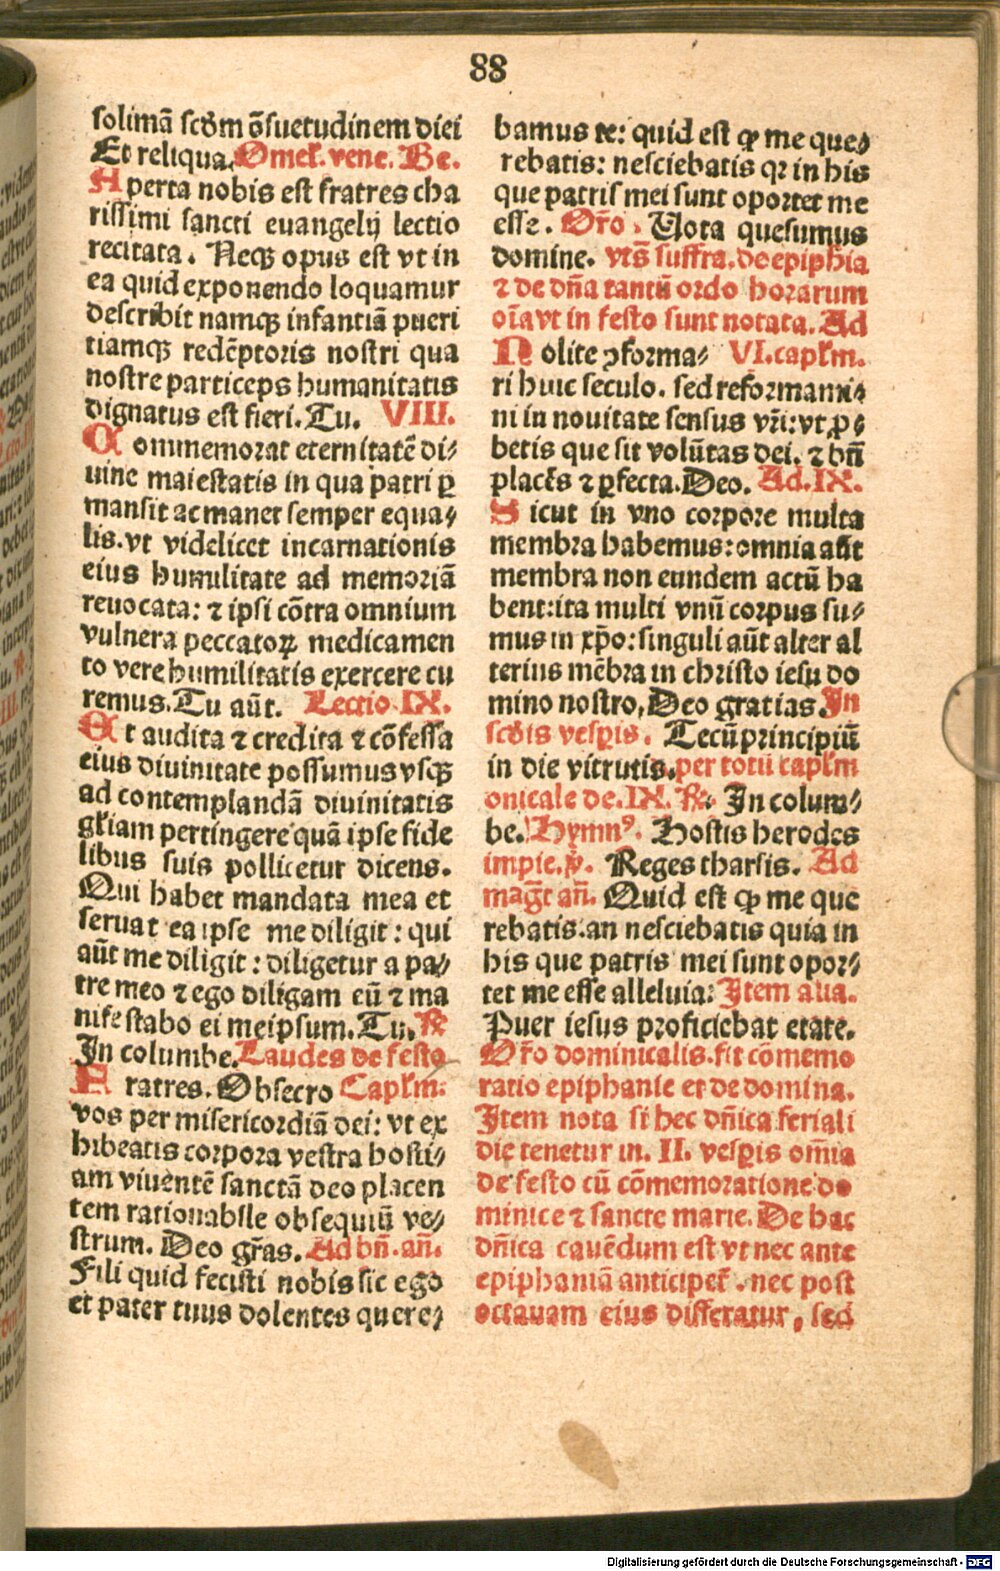 88
solimã scďm ↄ̃suetudinem diei
Et reliqua. Omeł. vene. Be.
Aperta nobis est fratres cha
rissimi sancti euangelij lectio
recitata. Neqꝫ opus est vt in
ea quid exponendo loquamur
describit namqꝫ infantiã pueri
tiamqꝫ redẽptoris nostri qua
nostre particeps humanitatis
dignatus est fieri. Tu. VIII.
Commemorat eternitatẽ di⸗
uine maiestatis in qua patri ꝑ
mansit ac manet semper equa⸗
lis. vt videlicet incarnationis
eius humilitate ad memoriã
reuocata: ⁊ ipsi cõtra omnium
vulnera peccatoꝝ medicamen
to vere humilitatis exercere cu
remus. Tu aũt. Lectio IX.
Et audita ⁊ credita ⁊ cõfessa
eius diuinitate possumus vsqꝫ
ad contemplandã diuinitatis
głiam pertingere quã ipse fide
libus suis pollicetur dicens.
Qui habet mandata mea et
seruat ea ipse me diligit: qui
aũt me diligit: diligetur a pa⸗
tre meo ⁊ ego diligam eũ ⁊ ma
nifestabo ei meipsum. Tu. ℟
In columbe. Laudes de festo
Fratres. Obsecro Capłm.
vos per misericordiã dei: vt ex
hibeatis corpora vestra hosti⸗
am viuentẽ sanctã deo placen
tem rationabile obsequiũ ve⸗
strum. Deo gr̃as. Ad bñ. añ.
Fili quid fecisti nobis sic ego
et pater tuus dolentes quere⸗
bamus te: quid est ꝙ me que⸗
rebatis: nesciebatis qꝛ in his
que patris mei sunt oportet me
esse. Or̃o. Uota quesumus
domine. vts̃ suffra. de epiphia
⁊ de dña tantũ ordo horarum
oĩa vt in festo sunt notata. Ad
Nolite ↄforma⸗ VI. capłm.
ri huic seculo. sed reformami⸗
ni in nouitate sensus vr̃i: vt ꝓ⸗
betis que sit volũtas dei. ⁊ bñ
placẽs ⁊ ꝑfecta. Deo. Ad. IX.
Sicut in vno corpore multa
membra habemus: omnia aũt
membra non eundem actũ ha
bent: ita multi vnũ corpus su⸗
mus in xp̃o: singuli aũt alter al
terius mẽbra in christo iesu do
mino nostro, Deo gratias. In
scďis vesꝑis. Tecũ principiũ
in die virtutis. per totũ capłm
onicale de. IX. ℟. In colum⸗
be. Hymnꝰ. Hostis herodes
impie. ℣. Reges tharsis. Ad
mag̃t añ. Quid est ꝙ me que
rebatis. an nesciebatis quia in
his que patris mei sunt opor⸗
tet me esse alleluia: Item alia.
Puer iesus proficiebat etate.
Or̃o dominicalis. fit cõmemo
ratio epiphanie et de domina.
Item nota si hec dñica feriali
die tenetur in. II. vesꝑis om̃ia
de festo cũ cõmemoratione do
minice ⁊ sancte marie. De hac
dñica cauẽdum est vt nec ante
epiphaniã anticipet̃. nec post
octauam eius differatur, sed
Digitalisierung gefördert durch die Deutsche Forschungsgemeinschaft - DFG